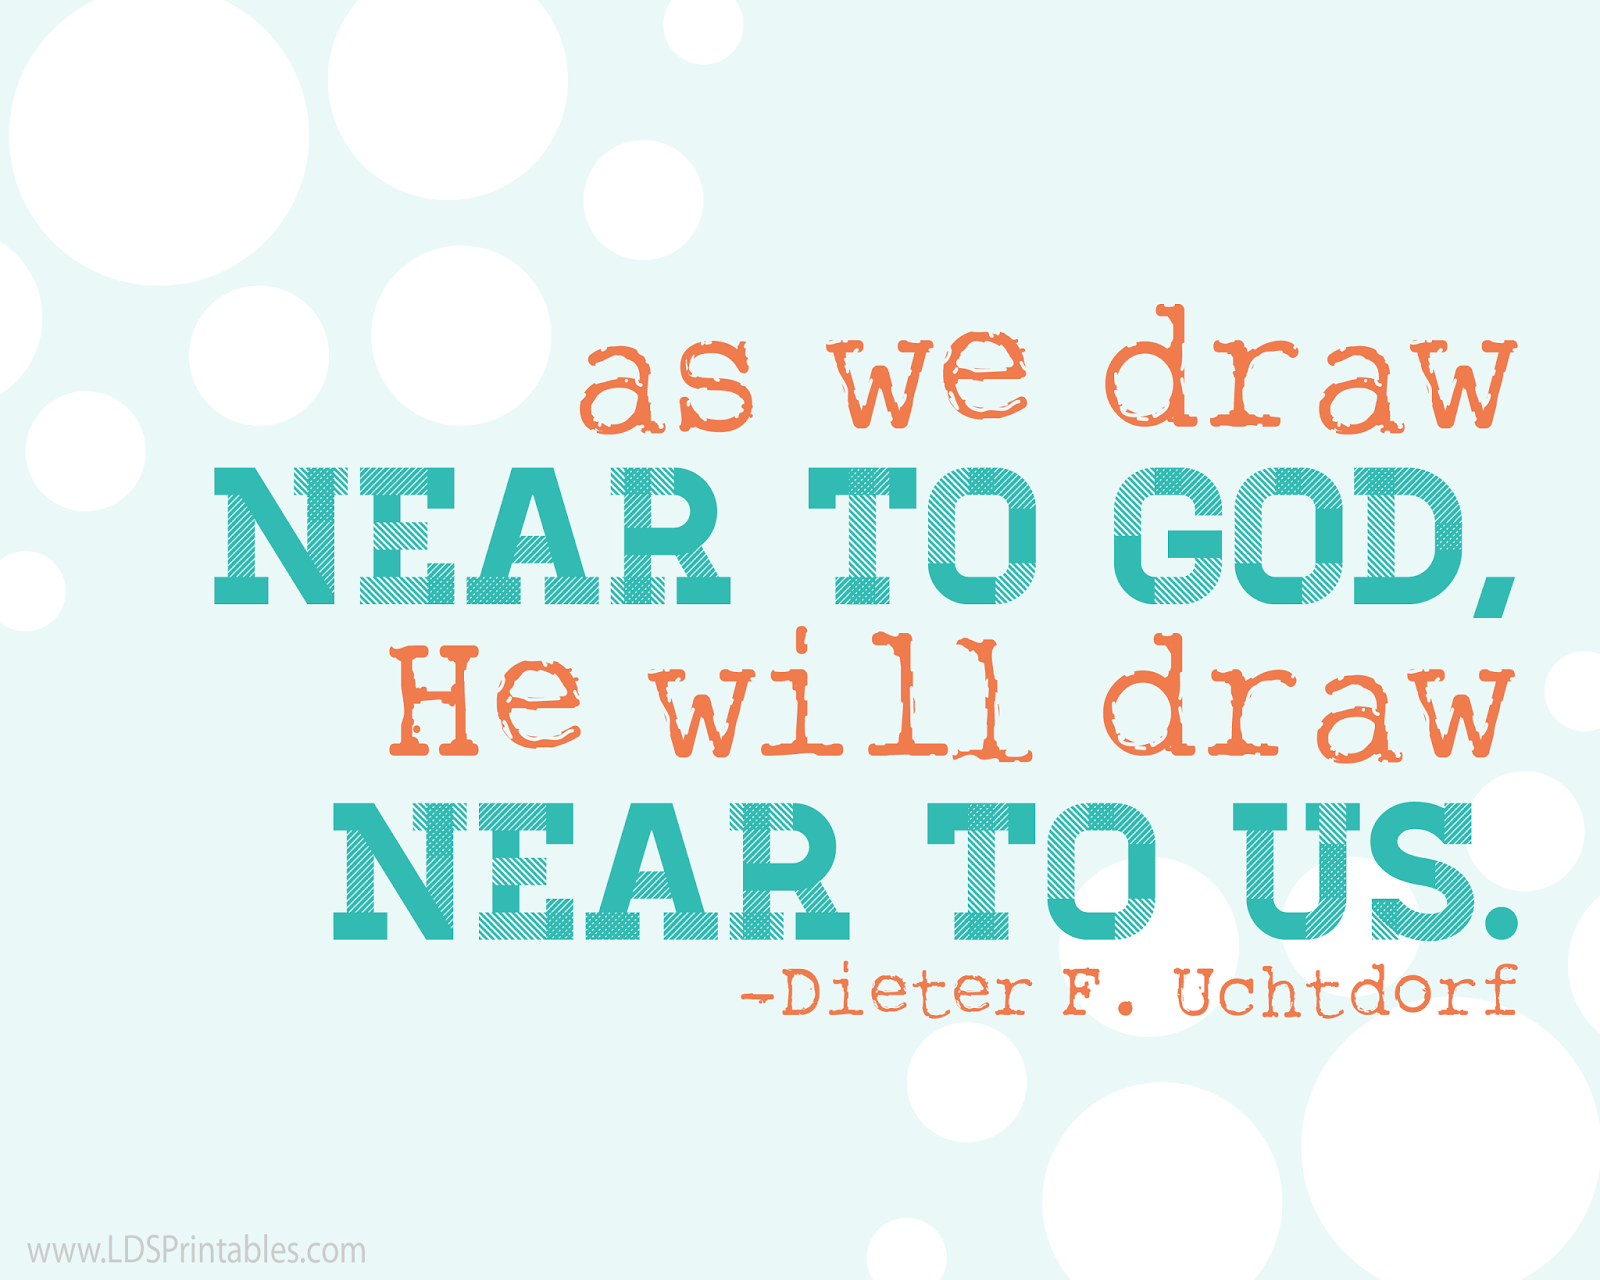 as we draw
NEAR TO GOD,
He will draw
NEAR TO US.
-Dieter F. Uchtdorf
www.LDSPrintables.com